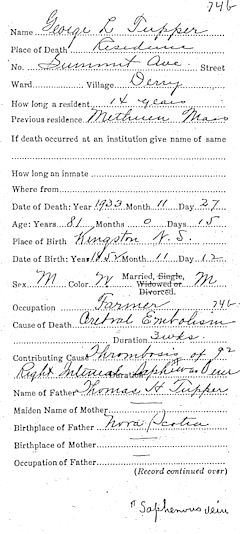 746
Name George L Tupper
Place of Death Residence
No. Summit Ave. Street
Ward Village Derry
How long a resident 14 years
Previous residence Methuen Mass
If death occurred at an institution give name of same
How long an inmate
Where from
Date of Death: Year 1933 Month 11 Day 27
Age: Years 81 Months 0 Days 15
Place of Birth Kingston N. S.
Date of Birth: Year 1852 Month 11 Day 12
Sex M Color W Married, Single, Widowed or Divorced. M
Occupation Farmer 746
Cause of Death Cerebral Embolism
Duration 3 wks
Contributing Cause Thrombosis of 92
Right Internal Saphenous Vein
Name of Father Thomas H Tupper
Maiden Name of Mother
Birthplace of Father Nova Scotia
Birthplace of Mother
Occupation of Father
(Record continued over)
" Saphenous vein